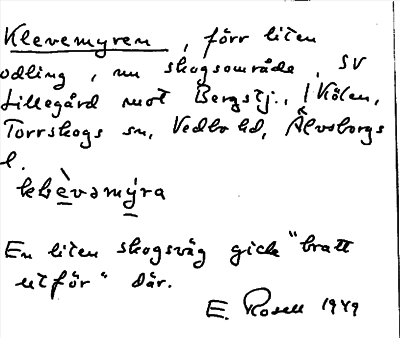 Klevemyren, förr liten
odling, nu skogsområde, SV
Lillegård mot Bergstj., i Kölen,
Torrskogs sn, Vedbo hd, Älvsborgs
l.
klè̱vəmý̱ra
En liten skogsväg gick "bratt
utför" där.
E. Rosell 1949